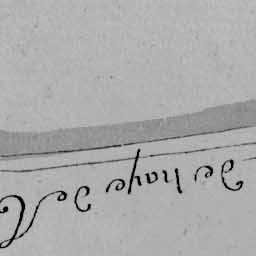 de haye de